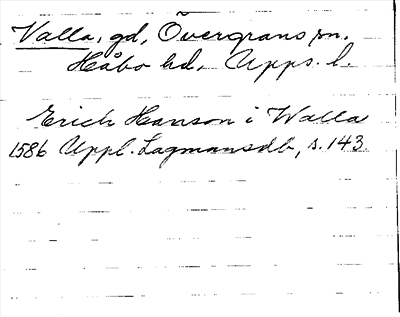 Valla, gd, Övergrans sn.
Håbo hd, Upps. l.
Erich Hanson i Walla
1586 Uppl. Lagmansdb, s. 143